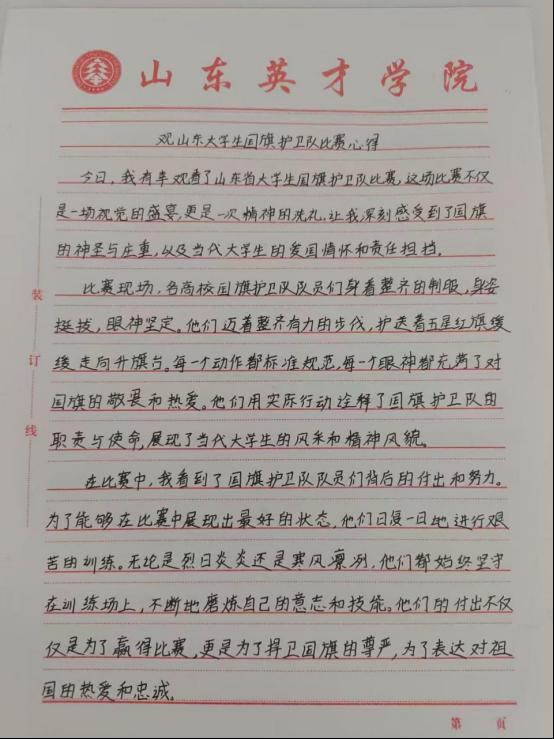 山东英才学院
观山东大学生国旗护卫队比赛心得
今日，我有幸观看了山东省大学生国旗护卫队比赛，这场比赛不仅
是一场视觉的盛宴，更是一次精神的洗礼，让我深刻感受到了国旗
的神圣与庄重，以及当代大学生的爱国情怀和责任担当。
比赛现场，各高校国旗护卫队队员们身着整齐的制服，身姿
挺拔，眼神坚定。他们迈着整齐有力的步伐，护送着五星红旗缓
缓走向升旗台。每一个动作都标准规范，每一个眼神都充满了对
国旗的敬畏和热爱。他们用实际行动诠释了国旗护卫队的
职责与使命，展现了当代大学生的风采和精神风貌。
在比赛中，我看到了国旗护卫队队员们背后的付出和努力。
为了能够在比赛中展现出最好的状态，他们日复一日地进行艰
苦的训练。无论是烈日炎炎还是寒风凛冽，他们都始终坚守
在训练场上，不断地磨炼自己的意志和技能。他们的付出不仅
仅是为了赢得比赛，更是为了捍卫国旗的尊严，为了表达对祖
国的热爱和忠诚。
装
订
线
第 页